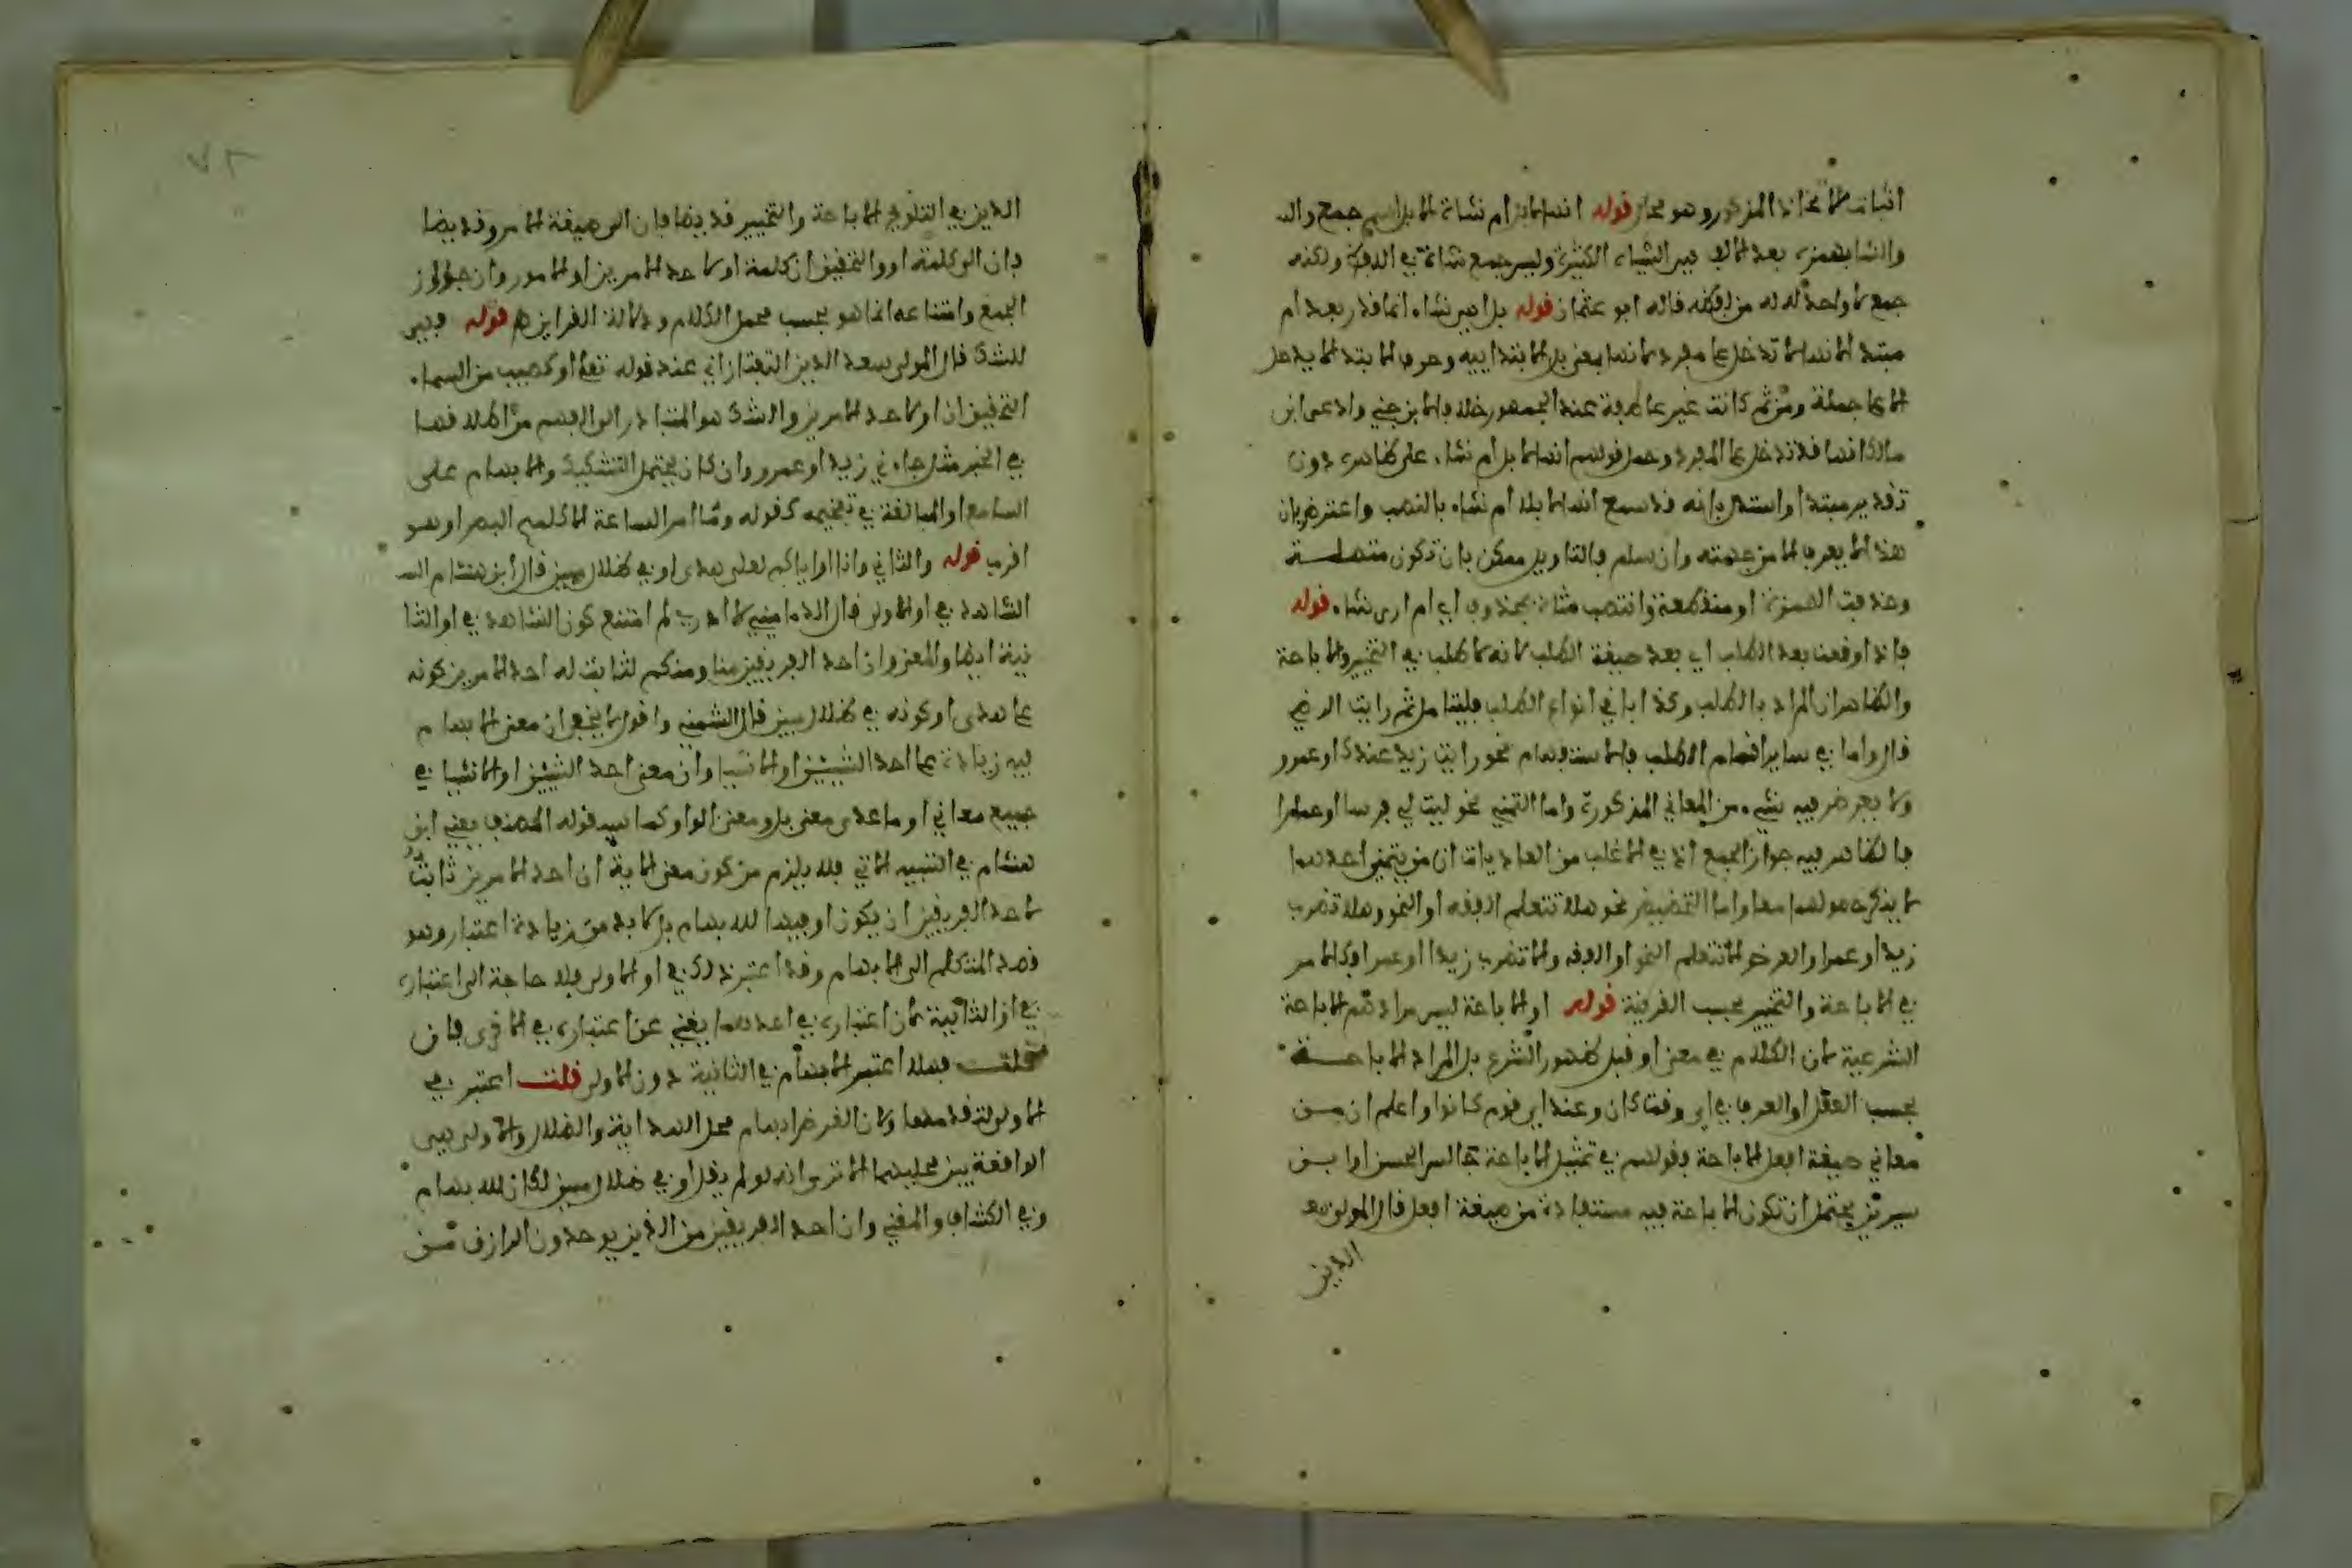 المذكور وهو محال قوله انها لابل ام شاة الابل اسم جمع والد
والشا بهمزة بعد الالف هي الشياه الكثيرة وليس جمع شاة في اللفظ ولكنه
جمع لا واحد له من لفظه قاله ابو عثمان قوله بل اهي شاء انما قدر بعد ام
مبتدا لانها لا تدخل على مفرد لانها بمعنى بل الابتدائية وحرف الابتدا لا يدخل
الا على جملة ومن ثم كانت غير عاطفة عند الجمهور خلافا لابن جني وادعى ابن
مالك انها قد تدخل على المفرد وحمل قولهم انها لابل ام شاء على ظاهره دون
تقدير مبتدا واستدل بانه قد سمع انها لابلا ام شاء بالنصب واعترض بان
هذا لا يعرف الا من جهته وان سلم فالتاويل ممكن بان تكون متصلة
وحذفت الهمزة او منقطعة وانتصب شاء بمحذوف اي ام ارى شاء قوله
فاذا وقعت بعد الطلب اي بعد صيغة الطلب لانه لا طلب في التخيير والاباحة
والظاهر ان المراد بالطلب وكذا باقي انواع الطلب فليتامل ثم رايت الرضي
قال واما في ساير اقسام الطلب فالاستفهام نحو رايت زيد عندك او عمرو
ولا يعرض فيه شيء من المعاني المذكورة واما التمني نحو ليت لي فرسا او حمارا
فالظاهر فيه جواز الجمع اذ في الاغلب من العادات ان من يتمنى احدهما
لا ينكر حصولهما معا واما التحضيض نحو هلا تتعلم الفقه او النحو وهلا تضرب
زيدا او عمرا والعرض نحو الا تتعلم النحو او الفقه والا تضرب زيدا او عمرا فكالامر
في الاباحة والتخيير بحسب القرينة قوله او الاباحة ليس مرادهم الاباحة
الشرعية لان الكلام في معنى او قبل ظهور الشرع بل المراد الاباحة
بحسب العقل او العرف في اي وقت كان وعند اي قوم كانوا واعلم ان من
معاني صيغة افعل الاباحة فقولهم في تمثيل الاباحة جالس الحسن او ابن
سيرين يحتمل ان تكون الاباحة فيه مستفادة من صيغة افعل قال المولى سعد
الدين
الدين في التلويح الاباحة والتخيير قد يضافان الى صيغة الامر وقد يضا
فان الى كلمة او والتحقيق ان كلمة او لاحد الامرين او الامور وان جواز
الجمع وامتناعه انما هو بحسب محل الكلام ودلالة القراين هـ قوله فهي
للشك قال المولى سعد الدين التفتازاني عند قوله تعلى او كصيب من السماء
التحقيق ان او لاحد الامرين والشك هو المتبادر الى الفهم من اطلاقها
في الخبر مثل جاءني زيد او عمرو وان كان يحتمل التشكيك والابهام على
السامع او المبالغة في تفخيمه كقوله وما امر الساعة الا كلمح البصر او هو
اقرب قوله والثاني وانا او اياكم لعلى هدى او في ظلال مبين قال ابن هشام الشـ
الشاهد في او الاولى قال الدماميني لا ادري لم امتنع كون الشاهد في او الثا
نية ايضا والمعنى وان احد الفريقين منا ومنكم لثابت له احد الامرين كونه
على هدى او كونه في ظلال مبين قال الشمني واقول لا يخفى ان معنى الابهام
فيه زيادة على احد الشيئين او الاشيا وان معنى احد الشيئين او الاشيا في
جميع معاني او ما عدى معنى بل ومعنى الواو كما سيد قوله المصنف يعني ابن
هشام في التنبيه الاتي فلا يلزم من كون معنى الاية ان احد الامرين ثابت
لاحد الفريقين ان يكون او فيها للابهام بل لا بد من زيادة اعتبار وهو
قصد المتكلم الى الابهام وقد اعتبر ذلك في او الاولى فلا حاجة الى اعتباره
في او الثانية لان اعتباره في احدهما يغني عن اعتباره في الاخرى فان
قلت فهلا اعتبر الابهام في الثانية دون الاولى قلت اعتبر في
الاولى لتقدمها ولان الغرض ابهام محل الهداية والضلال والاولى هي
الواقعة بين محليهما الا ترى انه لو لم يقل او في ضلال مبين لكان للابهام
وفي الكشاف والمغني وان احد الفريقين من الذين يوحدون الرازق من